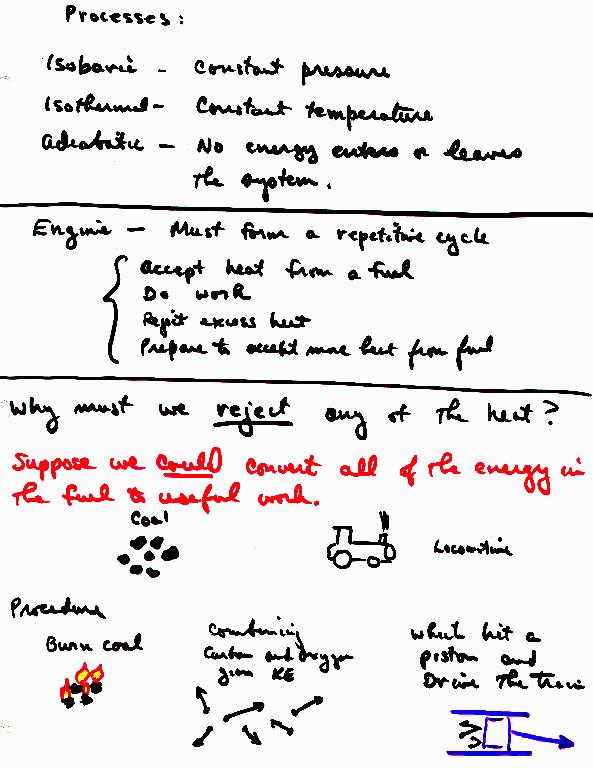 Processes:
Isobaric - Constant pressure
Isothermal - Constant temperature
adiabatic - No energy enters or leaves
the system.
Engine - Must form a repetitive cycle
accept heat from a fuel
Do work
Reject excess heat
Prepare to accept more heat from fuel
Why must we reject any of the heat?
Suppose we could convert all of the energy in
the fuel to useful work.
Coal
Locomotive
Procedure
Burn coal
Combining
Carbon and oxygen
gives KE
which hit a
piston and
Drive the train